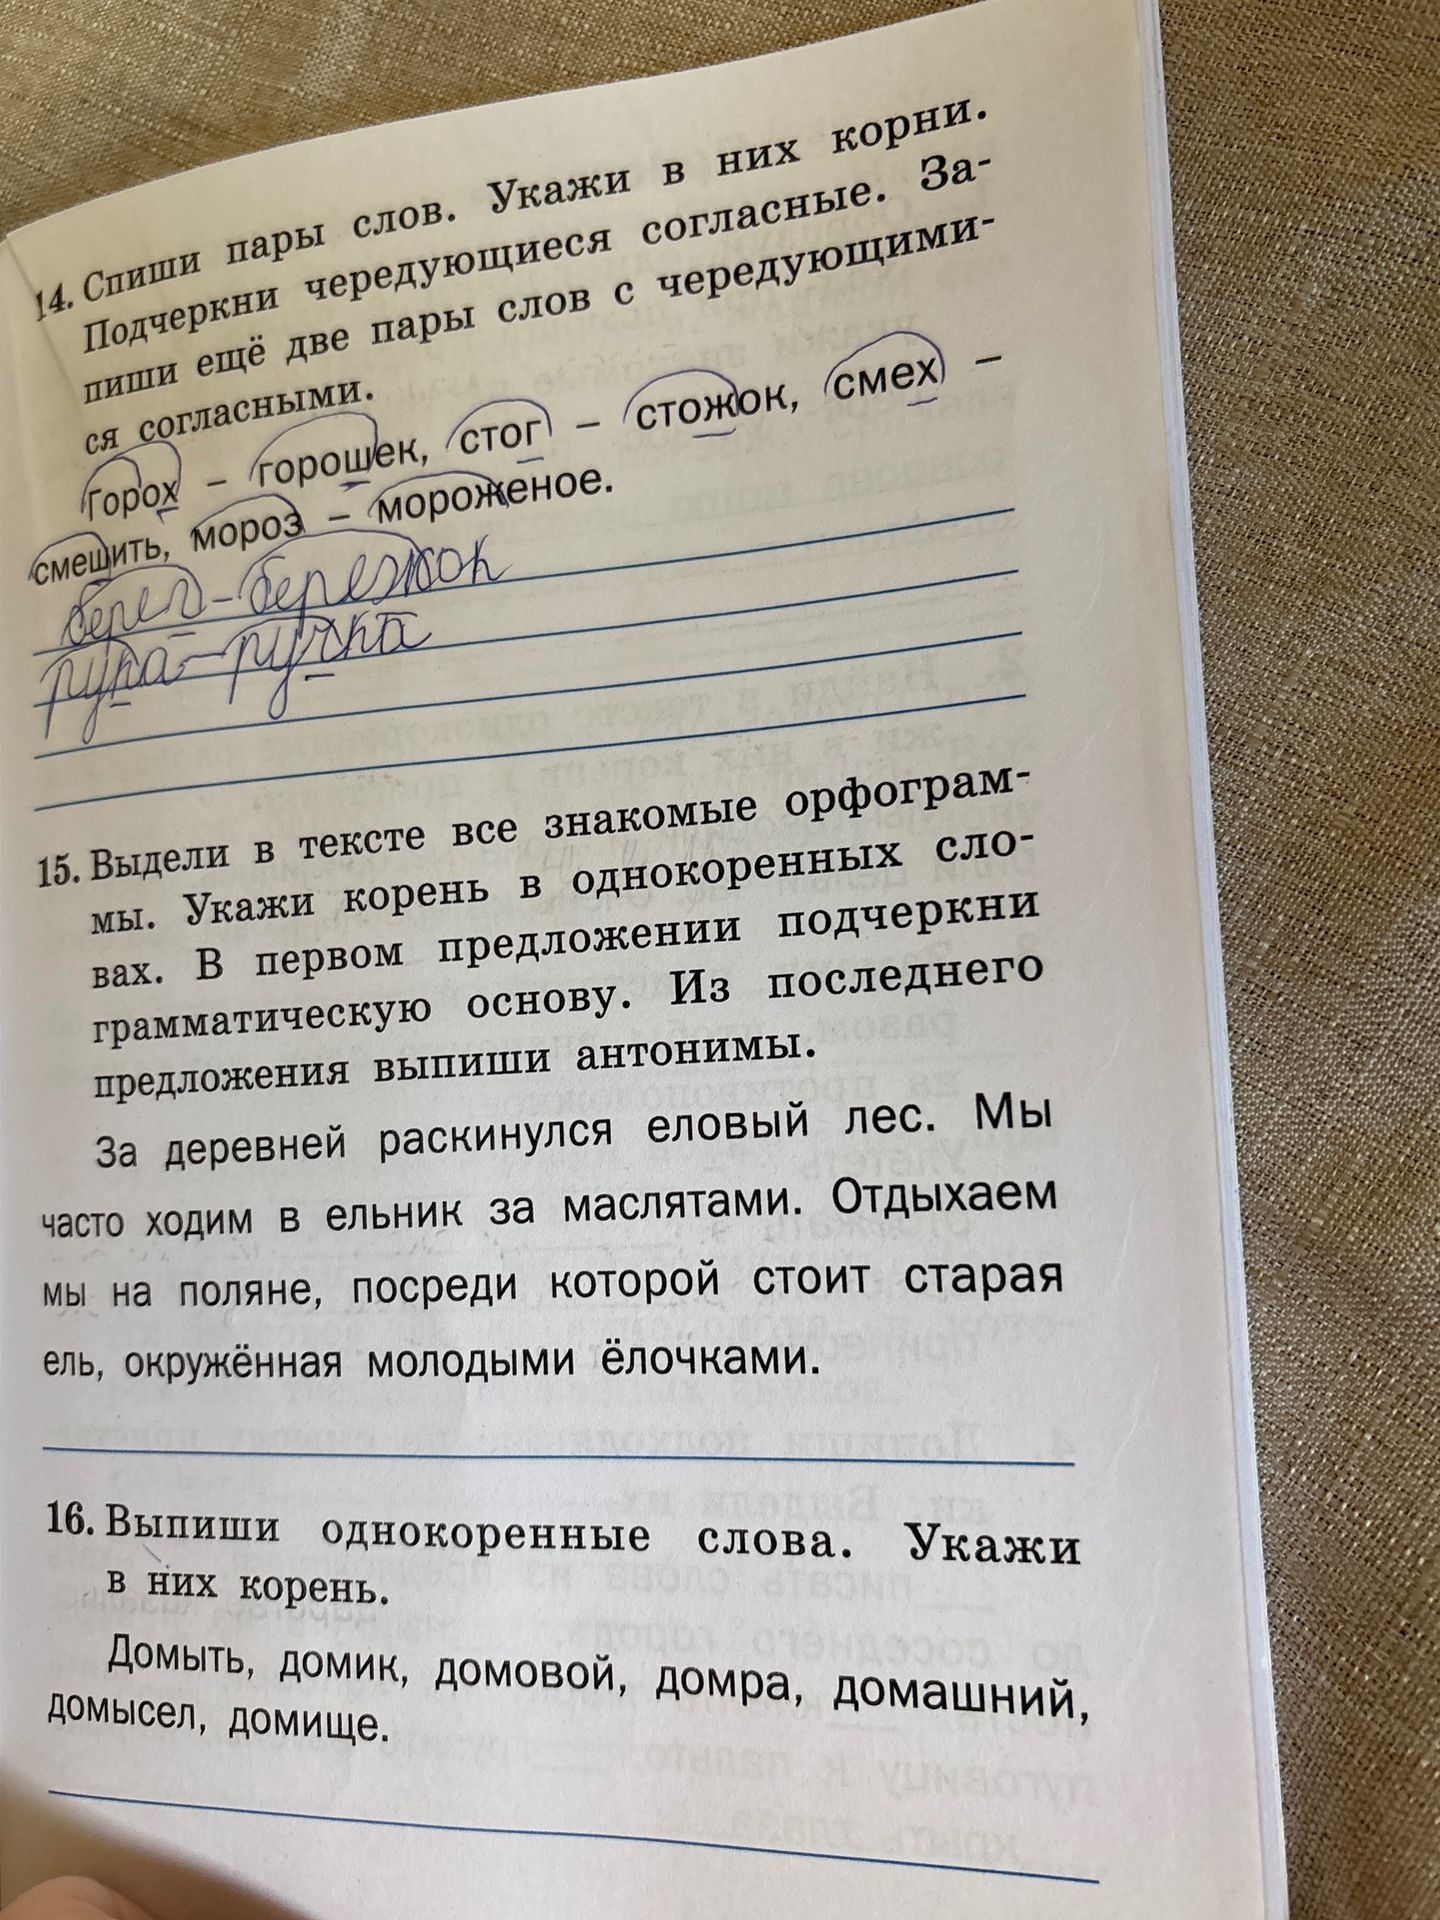 14. Спиши пары слов. Укажи в них корни.
Подчеркни чередующиеся согласные. За-
пиши ещё две пары слов с чередующими-
ся согласными.
Горох – горошек, стог – стожок, смех –
смешить, мороз – мороженое.
берег-бережок
рука-ручка
15. Выдели в тексте все знакомые орфограм-
мы. Укажи корень в однокоренных сло-
вах. В первом предложении подчеркни
грамматическую основу. Из последнего
предложения выпиши антонимы.
За деревней раскинулся еловый лес. Мы
часто ходим в ельник за маслятами. Отдыхаем
мы на поляне, посреди которой стоит старая
ель, окружённая молодыми ёлочками.
16. Выпиши однокоренные слова. Укажи
в них корень.
Домыть, домик, домовой, домра, домашний,
домысел, домище.